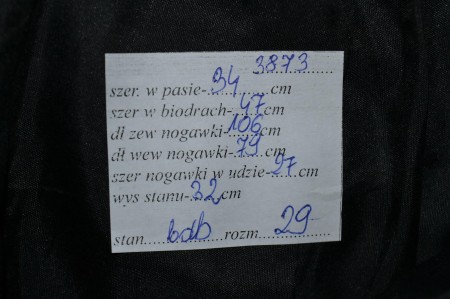 3873
szer. w pasie-34cm
szer w biodrach-47cm
dł zew nogawki-106cm
dł wew nogawki-79cm
szer nogawki w udzie-27cm
wys stanu-32cm
stan bdb rozm 29